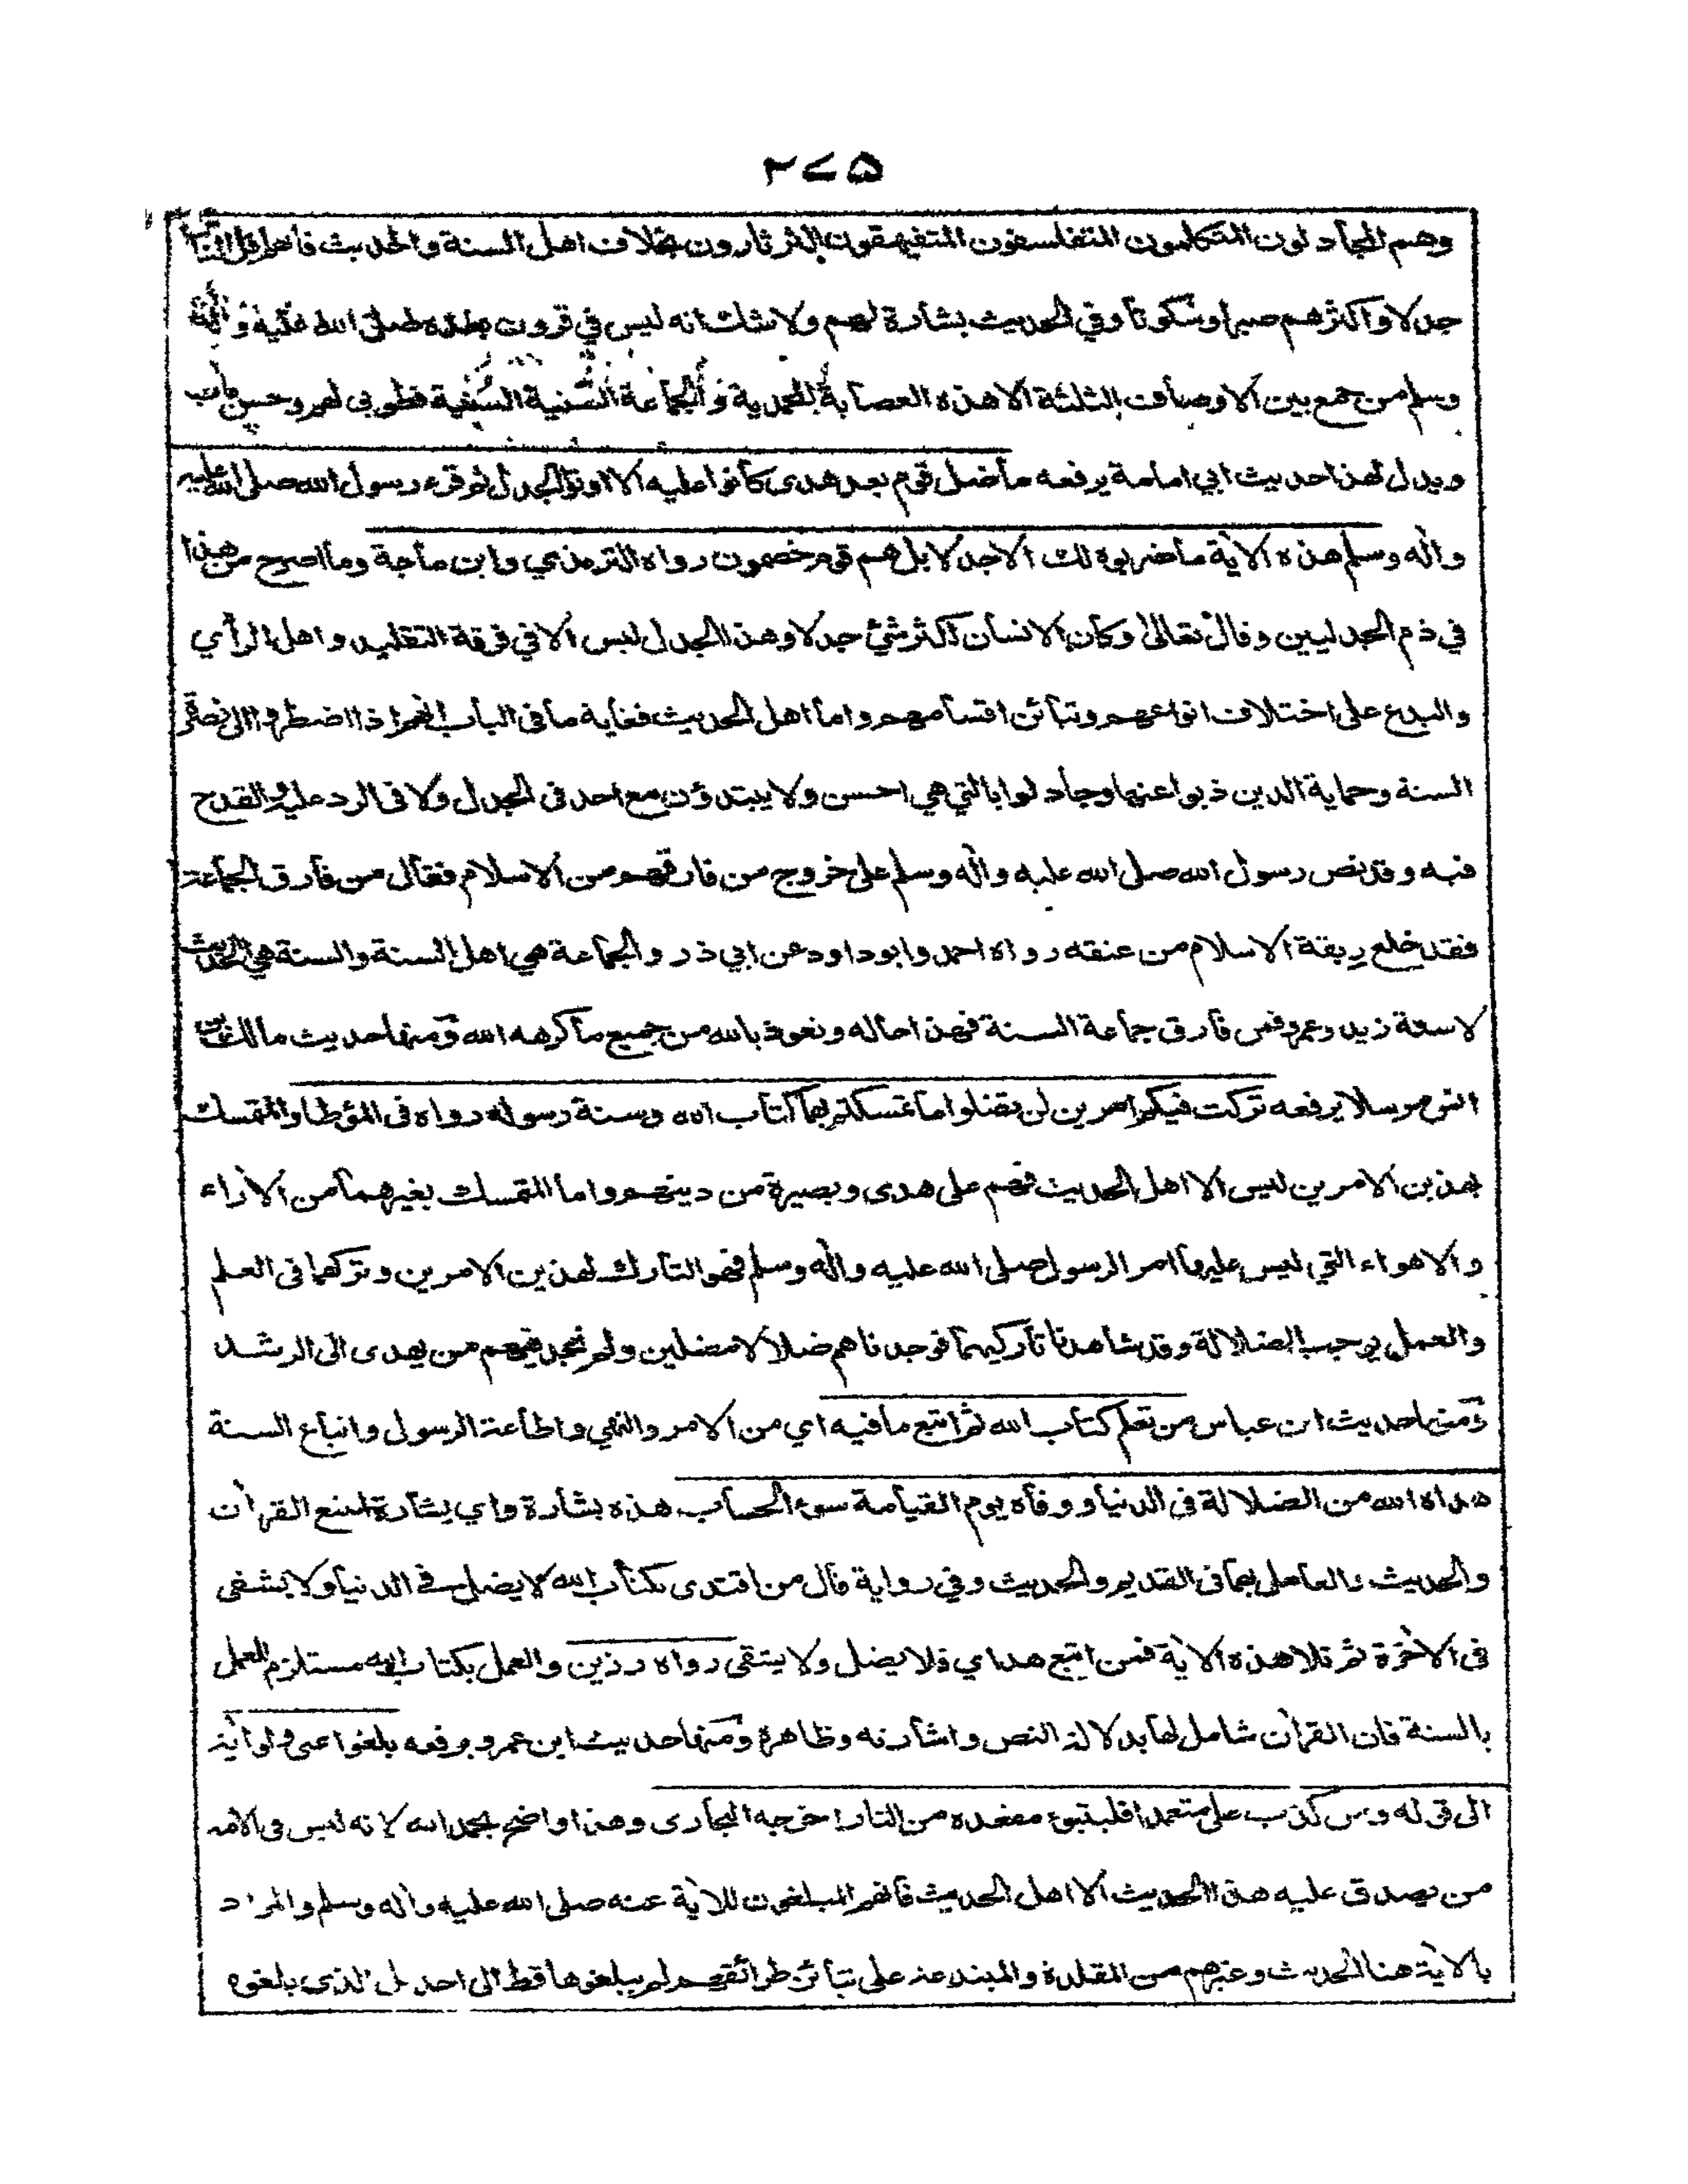 ٢٧٥
وهم المجادلون المتكلمون المتفلسفون المتفيهقون الثرثارون بخلاف اهل السنة والحديث فانهم اقل الناس
جدلا واكثرهم صبرا وسكوتا وفي الحديث بشارة لهم ولا شك انه ليس في قرون بعده صلى الله عليه واله
وسلم من جمع بين الاوصاف الثلثة الا هذه العصابة المحمدية والجماعة السنية السنية فطوبى لهم وحسن ماب
ويدل لهذا حديث ابي امامة يرفعه ما ضل قوم بعد هدى كانوا عليه الا اوتوا الجدل ثم قرء رسول الله صلى الله عليه
واله وسلم هذه الاية ما ضربوه لك الا جدلا بل هم قوم خصمون رواه الترمذي وابن ماجة وما اصرح من هذا
في ذم الجدليين وقال تعالى وكان الانسان اكثر شئ جدلا وهذا الجدل ليس الا في فرقة التقليد واهل الرأي
والبدع على اختلاف انواعهم وتبائن اقسامهم واما اهل الحديث فغاية ما في الباب انهم اذا اضطروا الى نصرة
السنة وحماية الدين ذبوا عنهما وجادلوا بالتي هي احسن ولا يبتدؤن مع احد في الجدل ولا في الرد عليه والقدح
فيه وقد نص رسول الله صلى الله عليه واله وسلم على خروج من فارقهم من الاسلام فقال من فارق الجماعة
فقد خلع ربقة الاسلام من عنقه رواه احمد وابو داود عن ابي ذر والجماعة هي اهل السنة والسنة هي الحديث
لا سعة زيد وعمرو فمن فارق جماعة السنة فهذا حاله ونعوذ بالله من جميع ما كرهه الله ومنها حديث مالك بن
انس مرسلا يرفعه تركت فيكم امرين لن تضلوا ما تمسكتم بهما كتاب الله وسنة رسوله رواه في المؤطا والمتمسك
بهذين الامرين ليس الا اهل الحديث فهم على هدى وبصيرة من دينهم واما المتمسك بغيرهما من الاراء
والاهواء التي ليس عليها امر الرسول صلى الله عليه واله وسلم فهو التارك لهذين الامرين وتركهما في العلم
والعمل يوجب الضلالة وقد شاهدنا تاركيهما فوجدناهم ضلالا مضلين ولم نجد فيهم من يهدى الى الرشد
ومنها حديث ابن عباس من تعلم كتاب الله ثم اتبع ما فيه اي من الامر والنهي واطاعة الرسول واتباع السنة
هداه الله من الضلالة في الدنيا ووقاه يوم القيامة سوء الحساب هذه بشارة واي بشارة لمتبع القران
والحديث والعامل بهما في القديم والحديث وفي رواية قال من اقتدى بكتاب الله لا يضل في الدنيا ولا يشقى
في الاخرة ثم تلا هذه الاية فمن اتبع هداي فلا يضل ولا يشقى رواه رزين والعمل بكتاب الله مستلزم للعمل
بالسنة فان القران شامل لها بدلالة النص واشارته وظاهره ومنها حديث ابن عمرو يرفعه بلغوا عني ولو اية
الى قوله ومن كذب علي متعمدا فليتبوء مقعده من النار اخرجه البخاري وهذا واضح بحمد الله لانه ليس في الامة
من يصدق عليه هذا الحديث الا اهل الحديث فانهم المبلغون للاية عنه صلى الله عليه واله وسلم والمراد
بالاية هنا الحديث وغيرهم من المقلدة والمبتدعة على تبائن طرائقهم لم يبلغوها قط الى احد بل الذى بلغوه